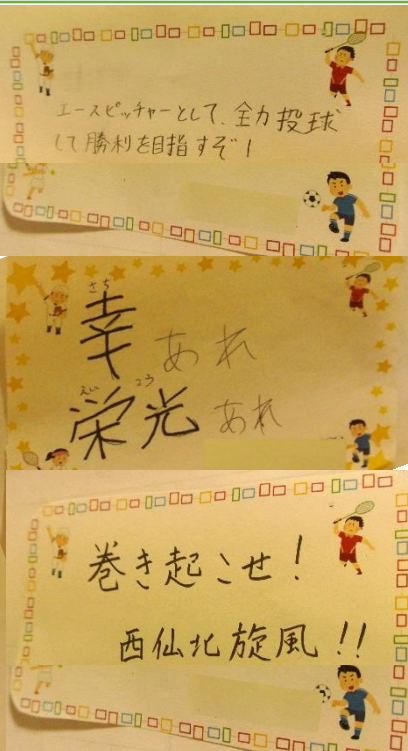 エースピッチャーとして、全力投球
して勝利を目指すぞ！
さち
幸あれ
えいこう
栄光あれ
巻き起こせ！
西仙北旋風！！